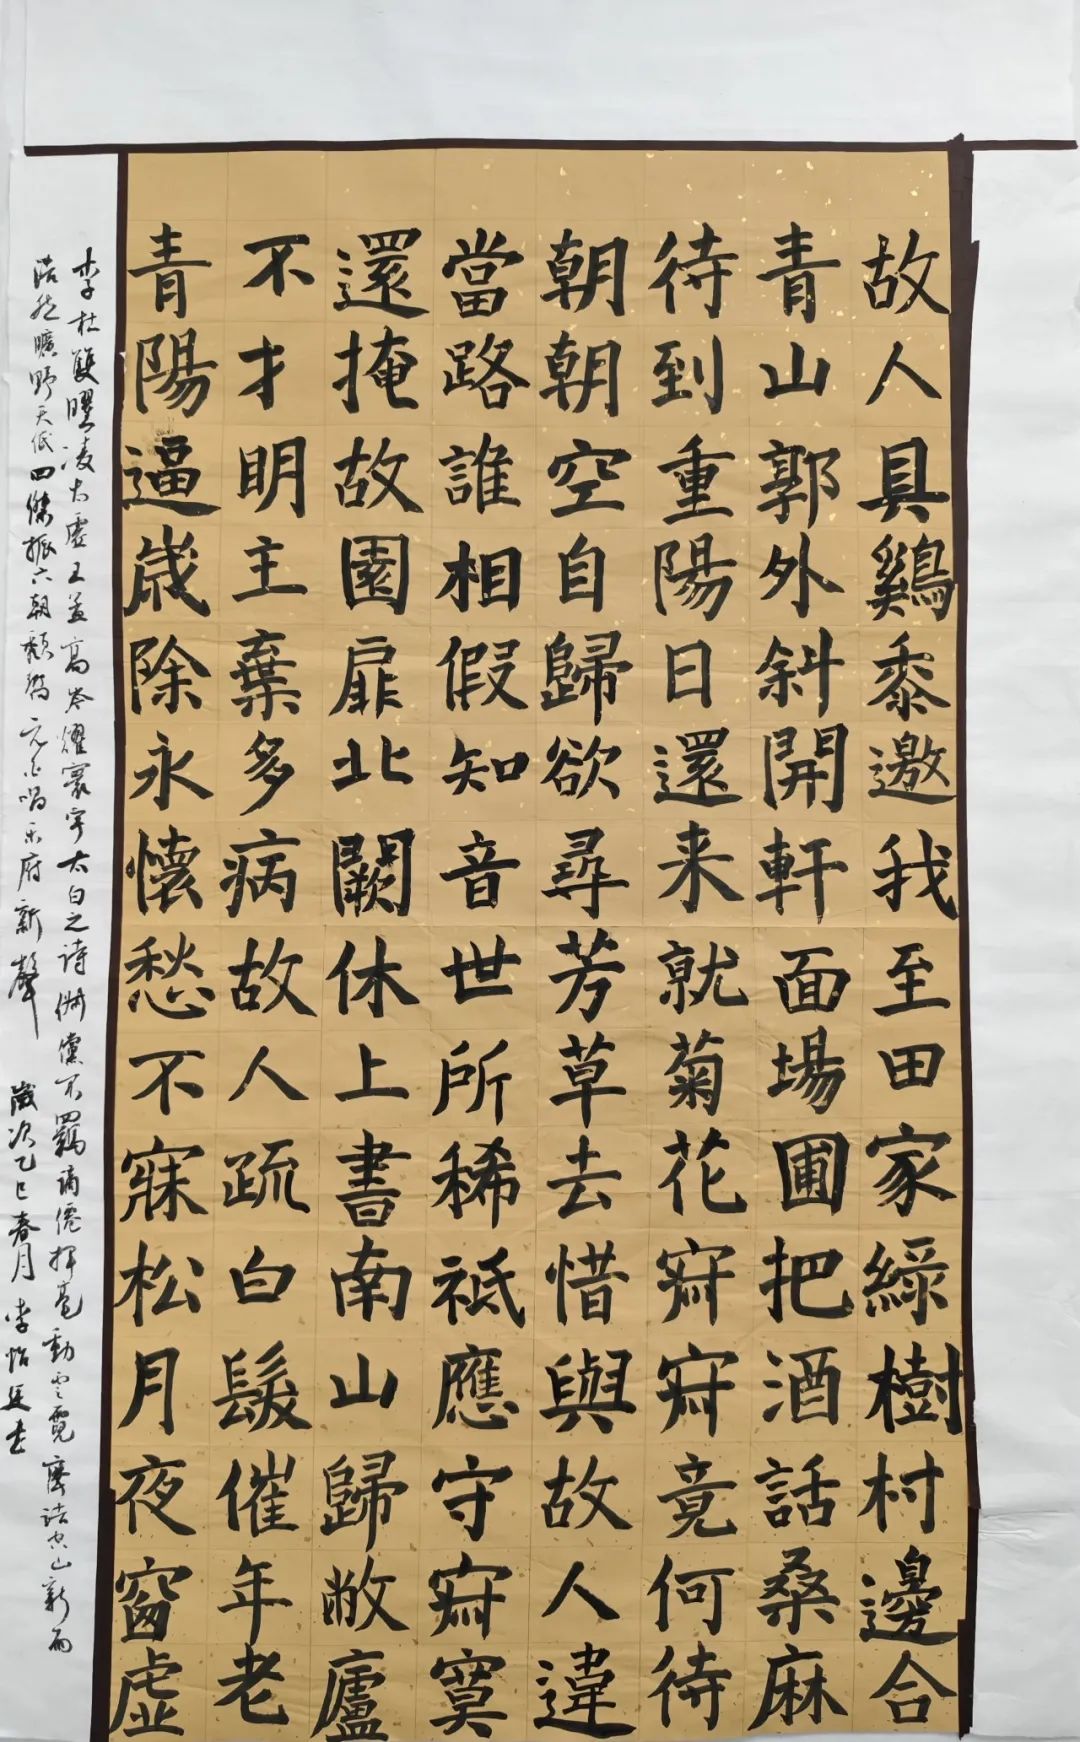 故人具鷄黍邀我至田家綠樹村邊合
青山郭外斜開軒面場圃把酒話桑麻
待到重陽日還来就菊花寂寂竟何待
朝朝空自歸欲尋芳草去惜與故人違
當路誰相假知音世所稀祇應守寂寞
還掩故園扉北闕休上書南山歸敝廬
不才明主棄多病故人疏白髮催年老
青陽逼歲除永懷愁不寐松月夜窗虛
李杜雙曜凌太虛王孟高岑耀寰宇太白之詩倜儻不羈謫仙揮毫動雲霓摩詰空山新雨
浩然曠野天低四傑振六朝頹元白唱乐府新聲
歲次乙巳春月李怡廷书